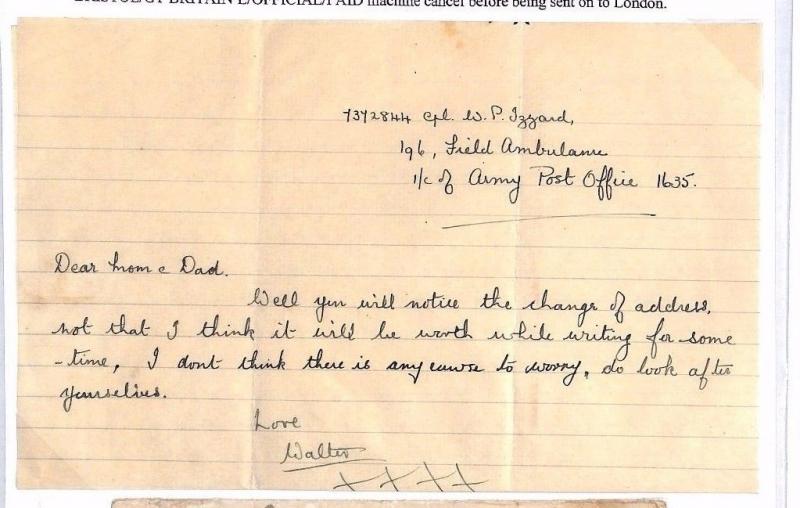 machine cancel before being sent on to London.
7372844 Cpl. W. P. Izzard,
196, Field Ambulance
1/c of Army Post Office 1635.
Dear Mom & Dad.
Well you will notice the change of address,
not that I think it will be worth while writing for some
-time, I dont think there is any cause to worry, do look after
yourselves.
Love
Walter
X X X X